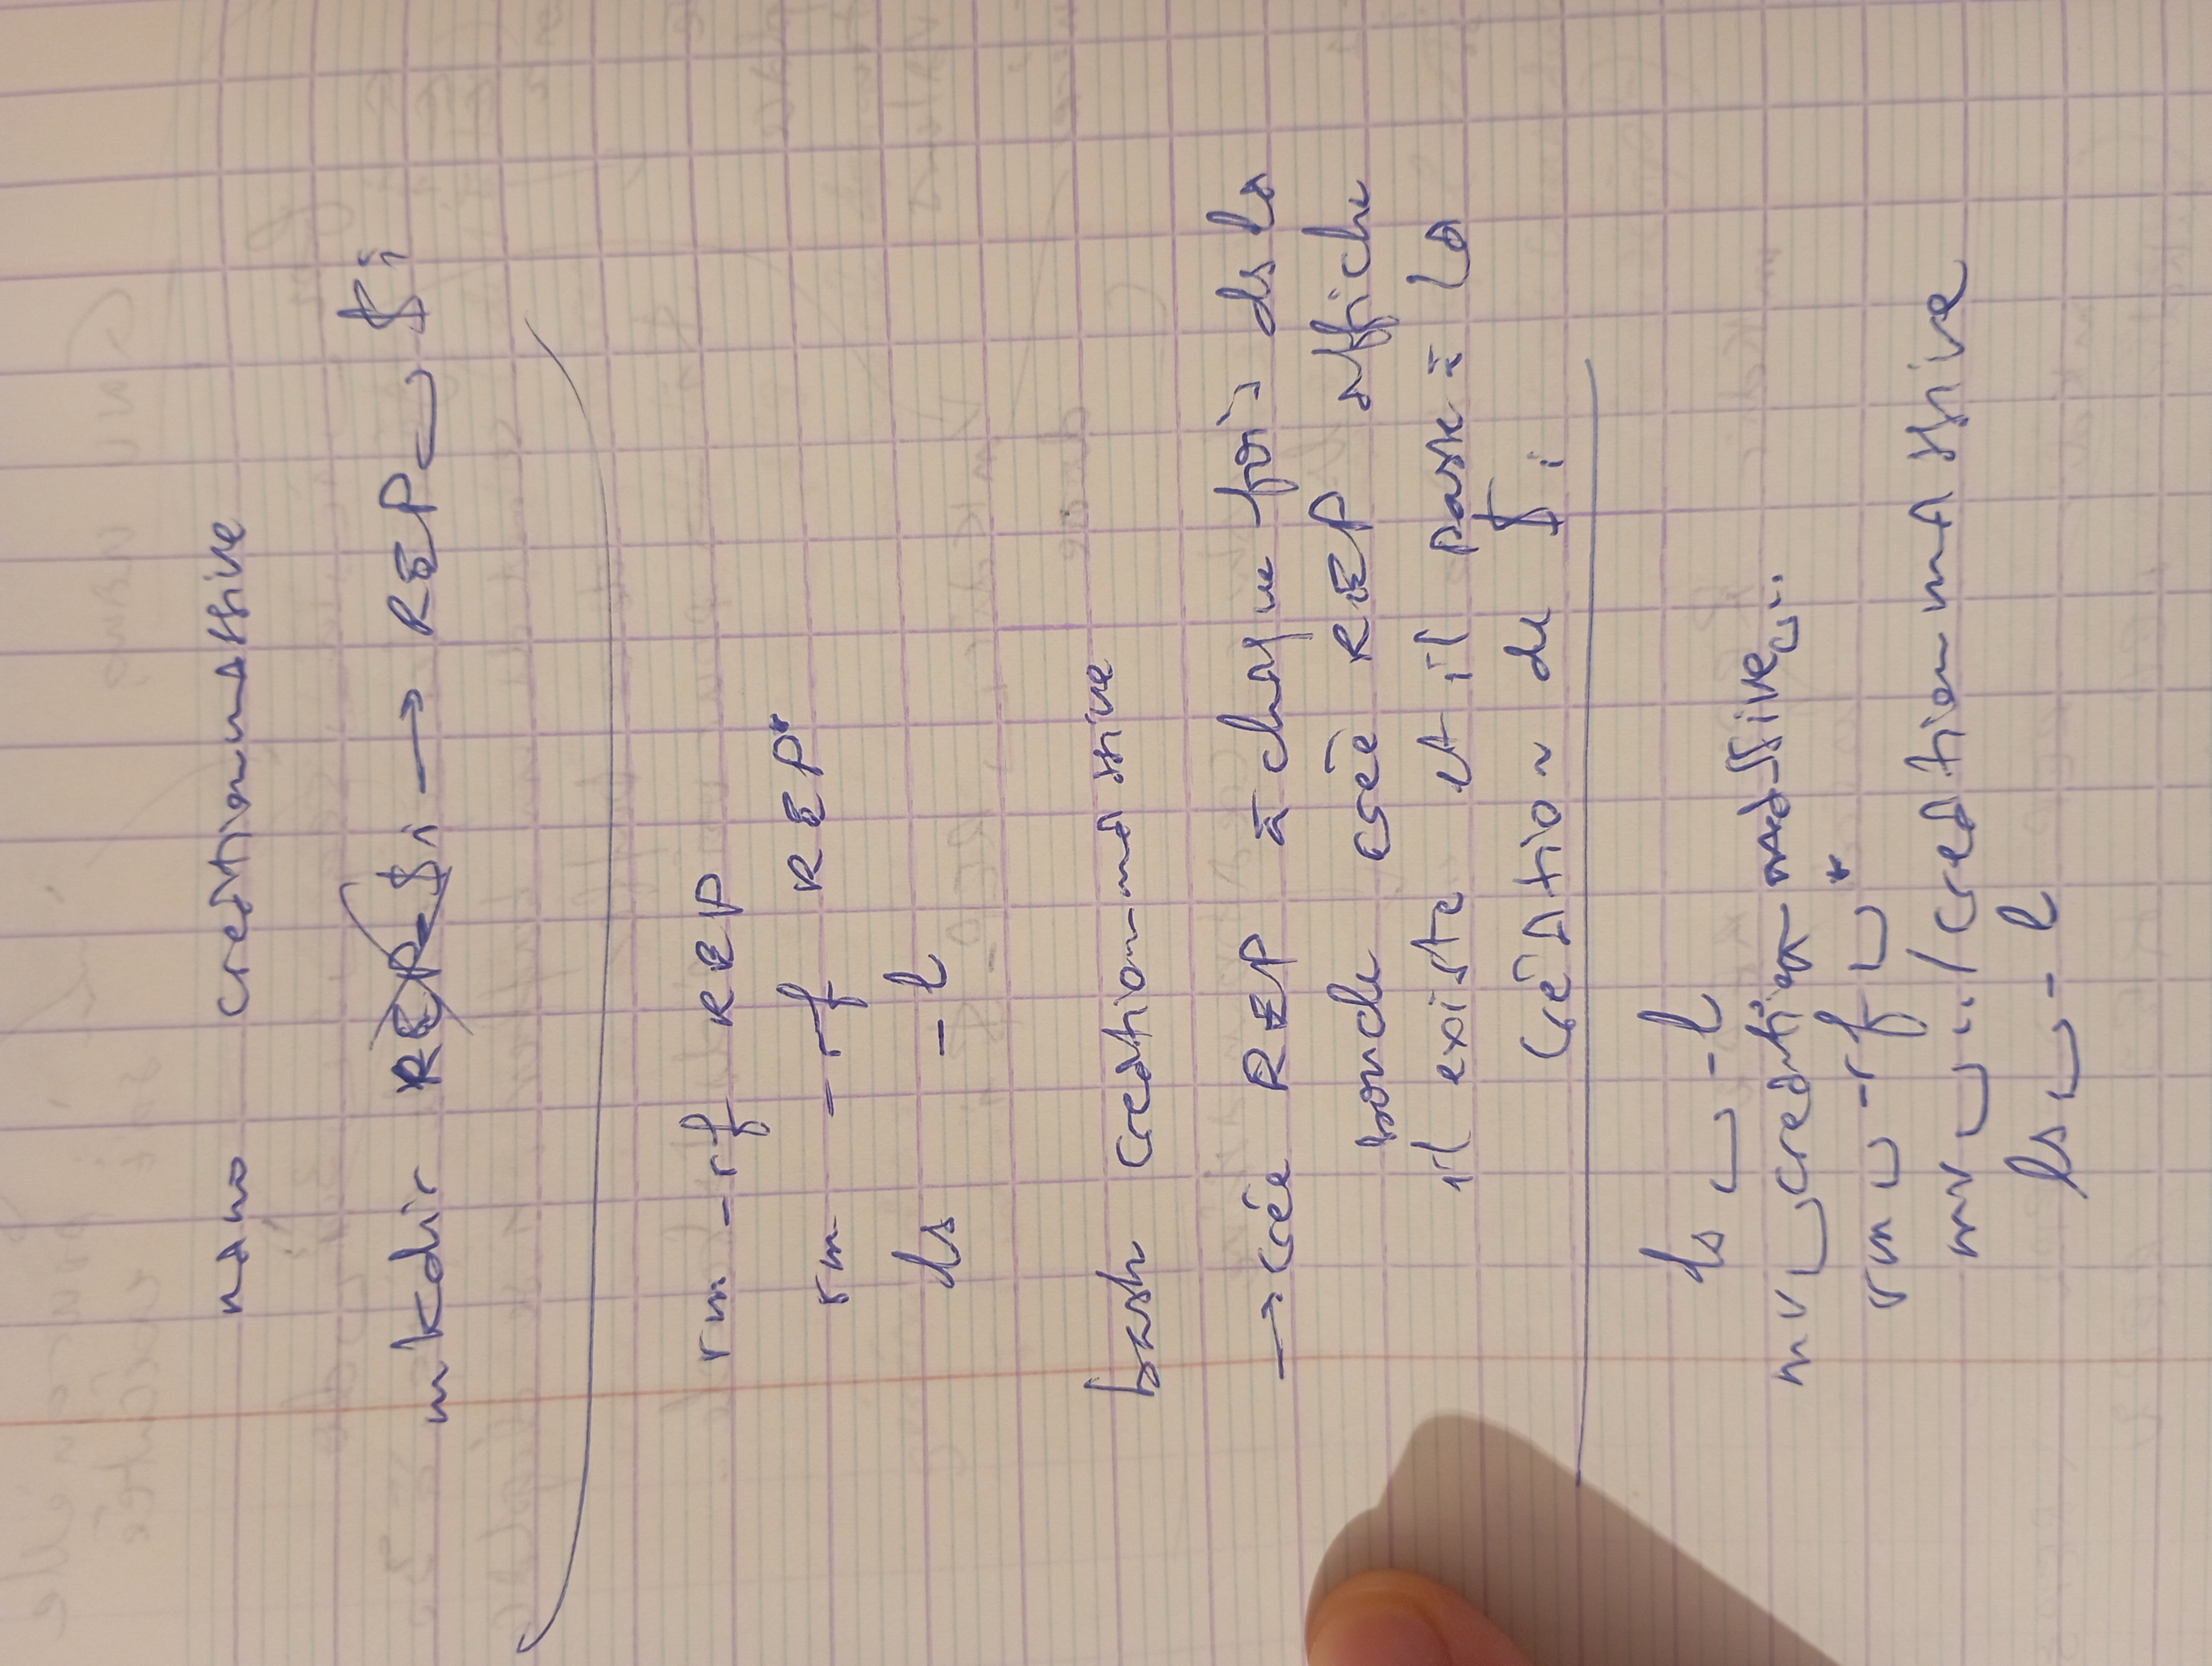 nano creationmassive
mkdir REP_$i → REP␣$i
rm -rf REP
rm -rf REP*
ls -l
bash creationmassive
→ crée REP à chaque fois ds la
boucle créé REP affiche
il existe et il passe à la
création de $i
ls␣-l
mv␣creationmassive␣..
rm␣-rf␣*
mv␣../creationmassive
ls␣-l